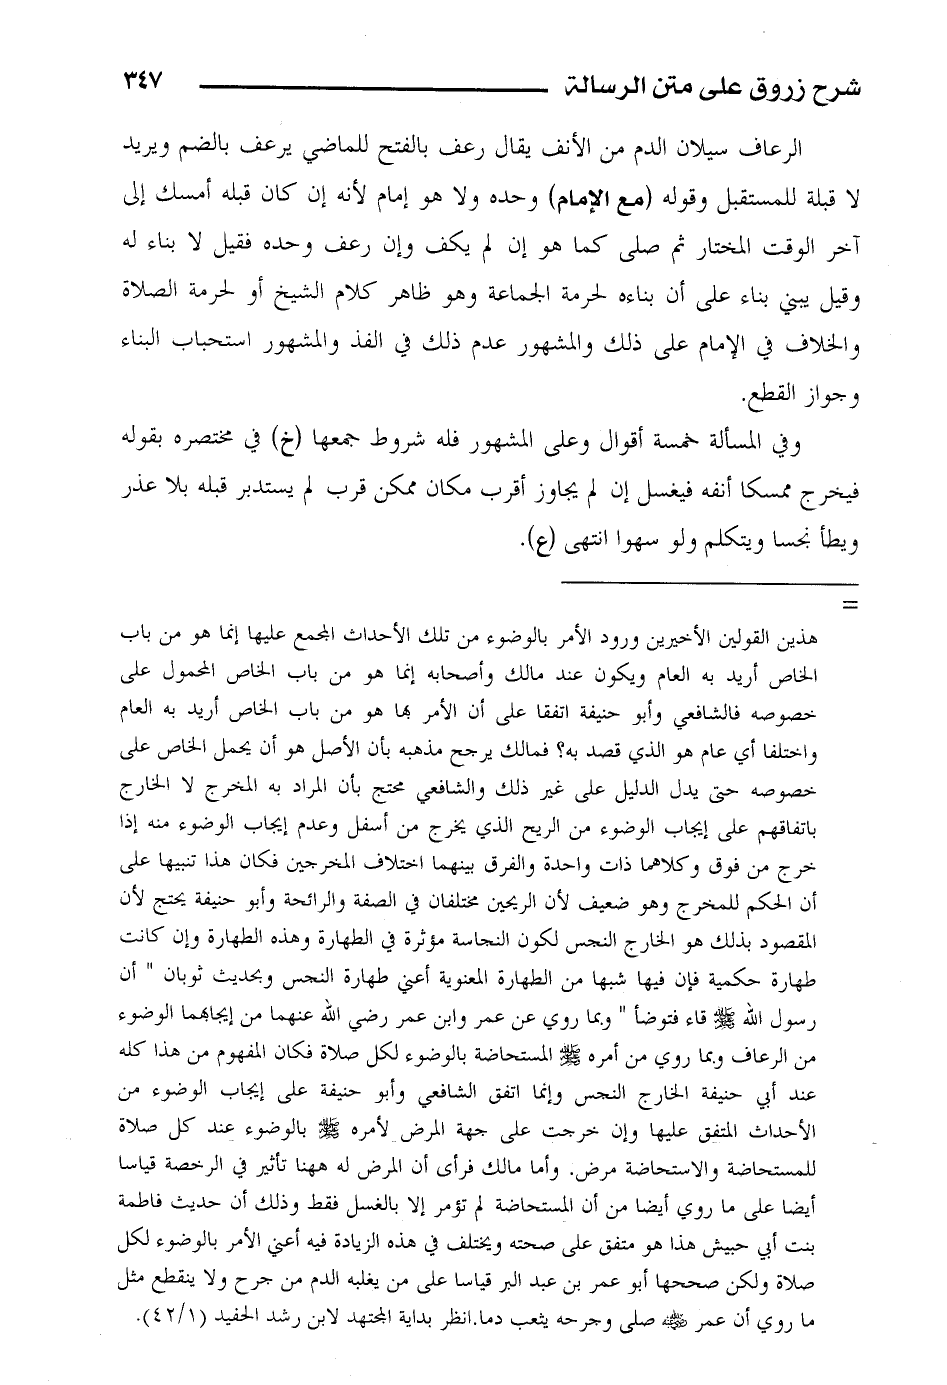 شرح زروق على متن الرسالة ٣٤٧
الرعاف سيلان الدم من الأنف يقال رعف بالفتح للماضي يرعف بالضم ويريد
لا قبلة للمستقبل وقوله (مع الإمام) وحده ولا هو إمام لأنه إن كان قبله أمسك إلى
آخر الوقت المختار ثم صلى كما هو إن لم يكف وإن رعف وحده فقيل لا بناء له
وقيل يبني بناء على أن بناءه لحرمة الجماعة وهو ظاهر كلام الشيخ أو لحرمة الصلاة
والخلاف في الإمام على ذلك والمشهور عدم ذلك في الفذ والمشهور استحباب البناء
وجواز القطع.
وفي المسألة خمسة أقوال وعلى المشهور فله شروط جمعها (خ) في مختصره بقوله
فيخرج ممسكا أنفه فيغسل إن لم يجاوز أقرب مكان ممكن قرب لم يستدبر قبله بلا عذر
ويطأ نجسا ويتكلم ولو سهوا انتهى (ع).
=
هذين القولين الأخيرين ورود الأمر بالوضوء من تلك الأحداث المجمع عليها إنما هو من باب
الخاص أريد به العام ويكون عند مالك وأصحابه إنما هو من باب الخاص المحمول على
خصوصه فالشافعي وأبو حنيفة اتفقا على أن الأمر بها هو من باب الخاص أريد به العام
واختلفا أي عام هو الذي قصد به؟ فمالك يرجح مذهبه بأن الأصل هو أن يحمل الخاص على
خصوصه حتى يدل الدليل على غير ذلك والشافعي محتج بأن المراد به المخرج لا الخارج
باتفاقهم على إيجاب الوضوء من الريح الذي يخرج من أسفل وعدم إيجاب الوضوء منه إذا
خرج من فوق وكلاهما ذات واحدة والفرق بينهما اختلاف المخرجين فكان هذا تنبيها على
أن الحكم للمخرج وهو ضعيف لأن الريحين مختلفان في الصفة والرائحة وأبو حنيفة يحتج لأن
المقصود بذلك هو الخارج النجس لكون النجاسة مؤثرة في الطهارة وهذه الطهارة وإن كانت
طهارة حكمية فإن فيها شبها من الطهارة المعنوية أعني طهارة النجس وبحديث ثوبان " أن
رسول الله ﷺ قاء فتوضأ " وبما روي عن عمر وابن عمر رضي الله عنهما من إيجابهما الوضوء
من الرعاف وبما روي من أمره ﷺ المستحاضة بالوضوء لكل صلاة فكان المفهوم من هذا كله
عند أبي حنيفة الخارج النجس وإنما اتفق الشافعي وأبو حنيفة على إيجاب الوضوء من
الأحداث المتفق عليها وإن خرجت على جهة المرض لأمره ﷺ بالوضوء عند كل صلاة
للمستحاضة والاستحاضة مرض. وأما مالك فرأى أن المرض له ههنا تأثير في الرخصة قياسا
أيضا على ما روي أيضا من أن المستحاضة لم تؤمر إلا بالغسل فقط وذلك أن حديث فاطمة
بنت أبي حبيش هذا هو متفق على صحته ويختلف في هذه الزيادة فيه أعني الأمر بالوضوء لكل
صلاة ولكن صححها أبو عمر بن عبد البر قياسا على من يغلبه الدم من جرح ولا ينقطع مثل
ما روي أن عمر رضي الله عنه صلى وجرحه يثعب دما.انظر بداية المجتهد لابن رشد الحفيد (٤٢/١).